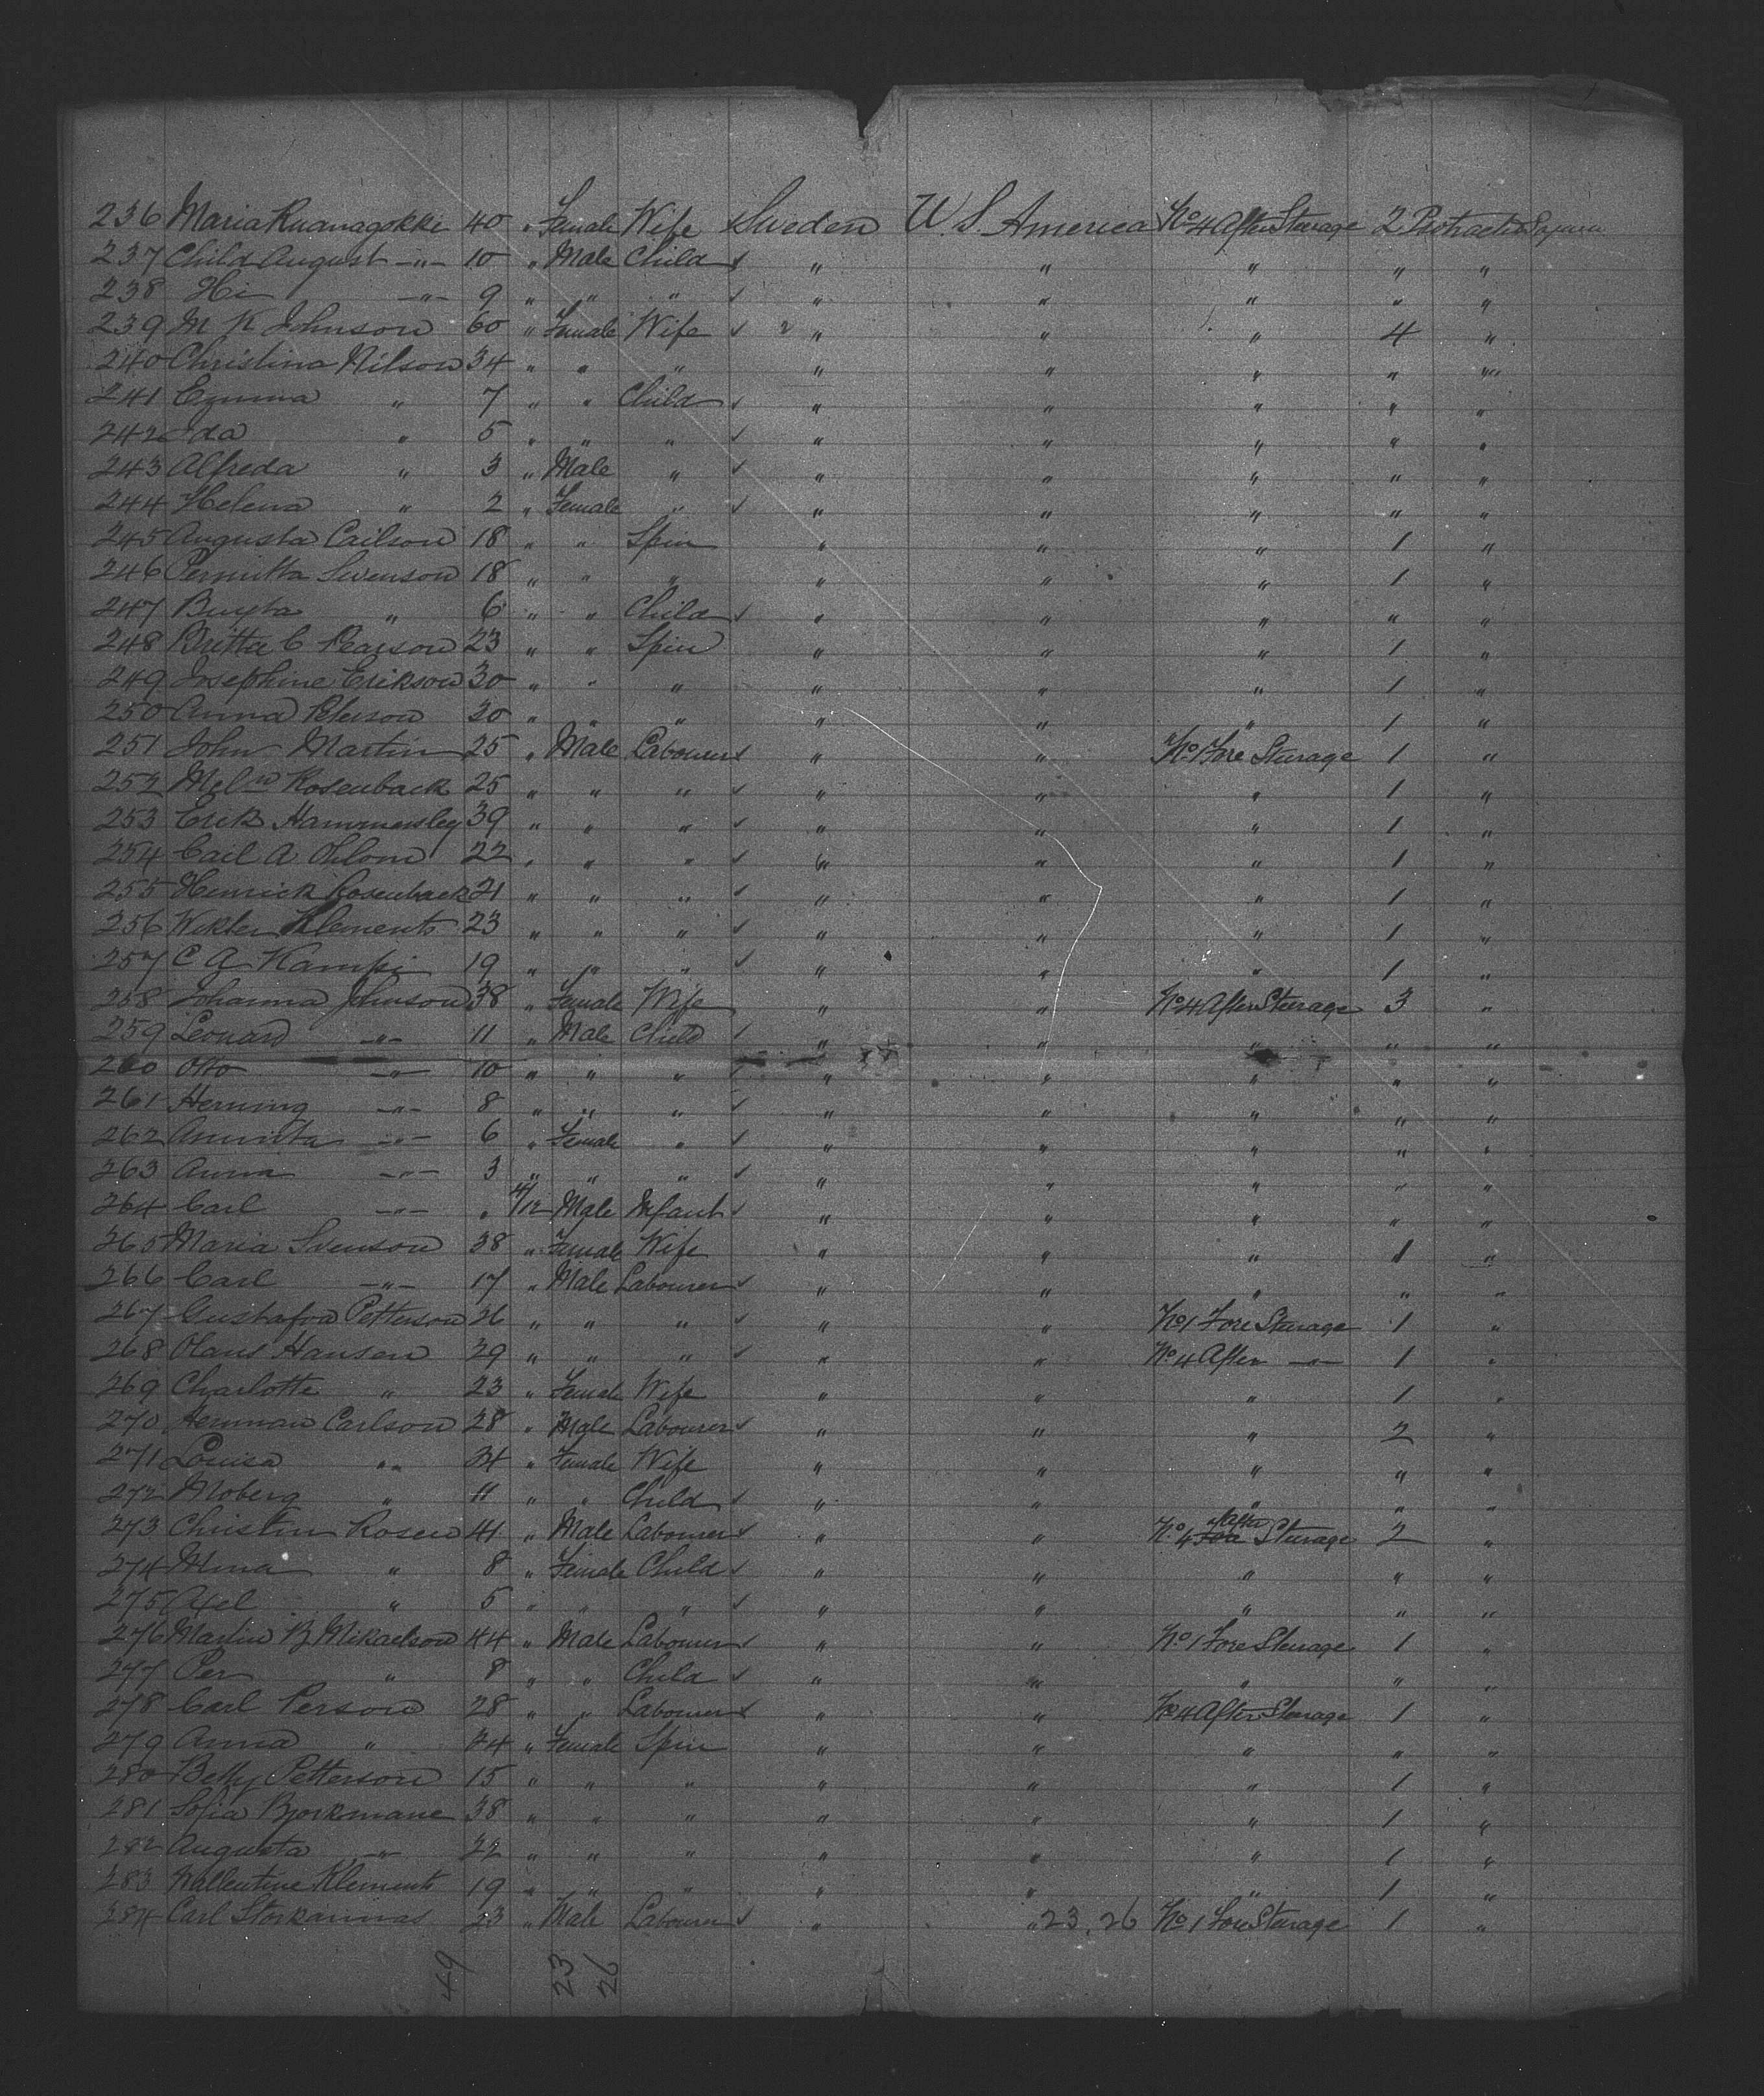 236 Maria Ruanagokki 40 " Female Wife Sweden U.S. America No 4 After Steerage 2 Protracted Sojourn
237 Child August -"- 10 " Male Child ✓ " " " " "
238 Hi -"- 9 " " " ✓ " " " " "
239 M K Johnson 60 " Female Wife ✓ " " " 4 "
240 Christina Nilson 34 " " " " " " " "
241 Emma " 7 " " Child ✓ " " " " "
242 Ida " 5 " " " ✓ " " " " "
243 Alfreda " 3 " Male " ✓ " " " " "
244 Helena " 2 " Female " ✓ " " " " "
245 Augusta Carlson 18 " " Spin " " " 1 "
246 Pernitta Svenson 18 " " " " " " 1 "
247 " 6 " " Child ✓ " " " " "
248 Britta C Pearson 23 " " Spin " " " 1 "
249 Josephine Erikson 30 " " " " " " 1 "
250 Anna Peterson 30 " " " " " " 1 "
251 John Martin 25 " Male Labourer ✓ " " No 1 Fore Sterage 1 "
252 Rosenback 25 " " " ✓ " " " 1 "
253 Erik Hammersley 39 " " " ✓ " " " 1 "
254 Carl A 22 " " " ✓ " " " 1 "
255 Henrick Rosenback 21 " " " ✓ " " " 1 "
256 Wikter Klements 23 " " " ✓ " " " 1 "
257 C A Kampi 19 " " " ✓ " " " 1 "
258 Johanna Johnson 38 " Female Wife " " No 4 After Steerage 3 "
259 Leonard -"- 11 " Male Child ✓ " " " " "
260 Otto -"- 10 " " " ✓ " " " " "
261 Herning -"- 8 " " " ✓ " " " " "
262 Annita -"- 6 " Female " ✓ " " " " "
263 Anna -"- 3 " " " ✓ " " " " "
264 Carl -"- " 4/12 Male Infant ✓ " " " " "
265 Maria Svenson 38 " Female Wife " " " 1 "
266 Carl -"- 17 " Male Labourer ✓ " " " " "
267 Gustafva Petterson 26 " " " ✓ " " No 1 Fore Sterage 1 "
268 Olaus Hansen 29 " " " ✓ " " No 4 After -"- 1 "
269 Charlotte " 23 " Female Wife " " " 1 "
270 Herman Carlson 28 " Male Labourer ✓ " " " 2 "
271 Louisa " 34 " Female Wife " " " " "
272 Moberg " 11 " " Child ✓ " " " " "
273 Christin Rosen 41 " Male Labourer ✓ " " No 4 Fore After Sterage 2 "
274 Mina " 8 " Female Child ✓ " " " " "
275 Axel " 5 " " " ✓ " " " " "
276 Martin B Mikaelson 44 " Male Labourer ✓ " " No 1 Fore Sterage 1 "
277 Per " 8 " " Child ✓ " " " " "
278 Carl Person 28 " " Labourer ✓ " " No 4 After Sterage 1 "
279 Anna " 24 " Female Spin " " " " "
280 Betty Petterson 15 " " " " " " 1 "
281 Sofia Bjorkmane 38 " " " " " " 1 "
282 Augusta -"- 22 " " " " " " 1 "
283 Wallentine Klements 19 " " " " " " 1 "
284 Carl Storkamnas 23 " Male Labourer ✓ " " 23, 26 No 1 Fore Sterage 1 "
49 23 26